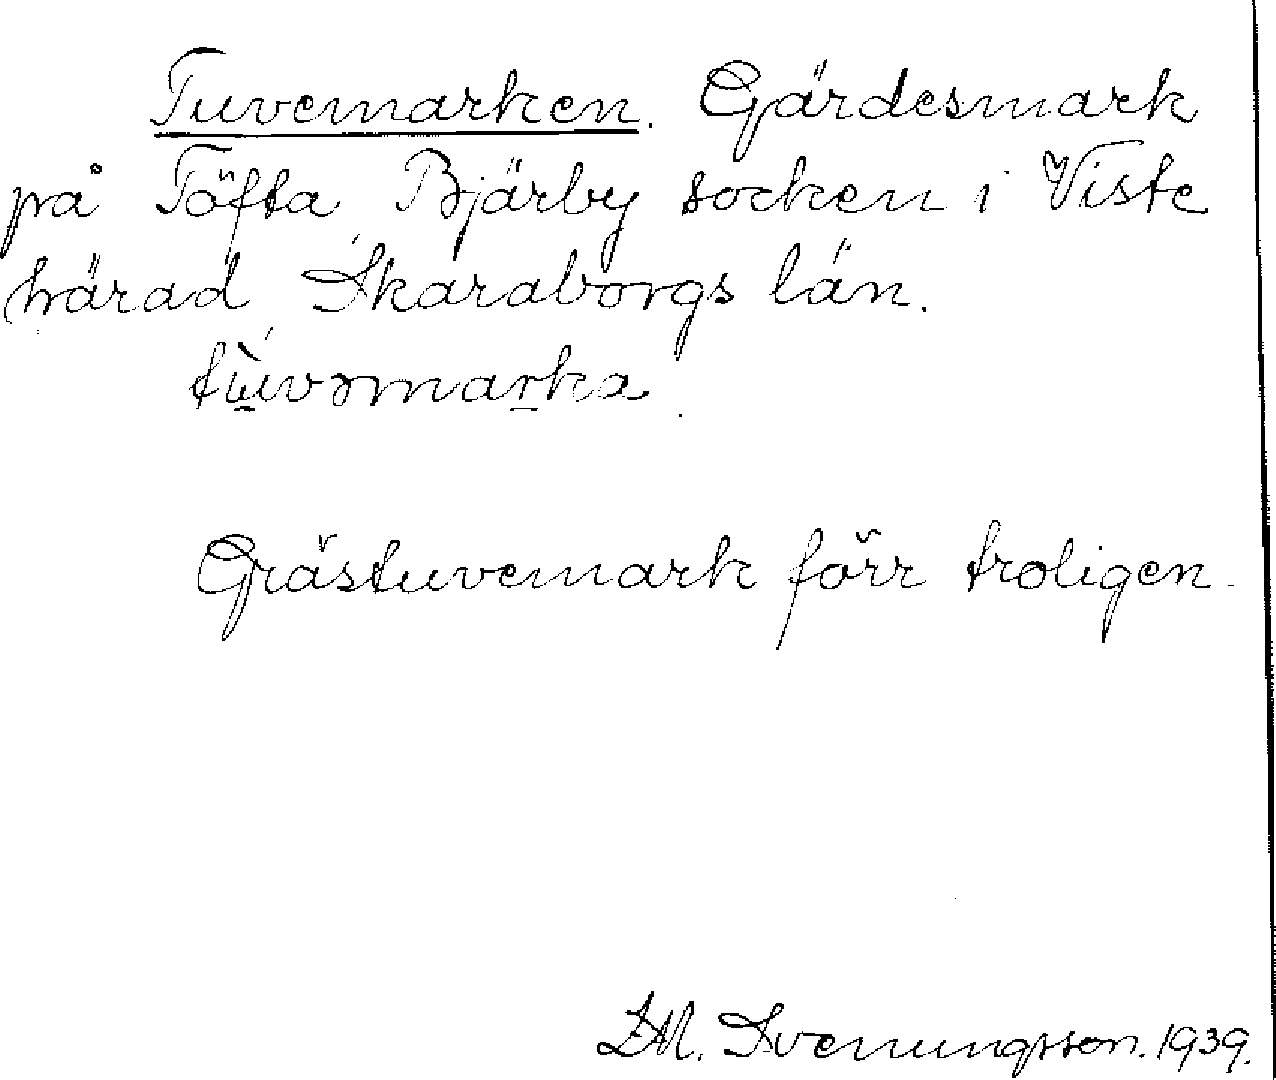 Tuvemarken. Gärdesmark
på Töfta, Bjärby socken i Viste
härad, Skaraborgs län.
tùvəmarka.
Grästuvemark förr troligen.
D.M. Svenungsson. 1939.